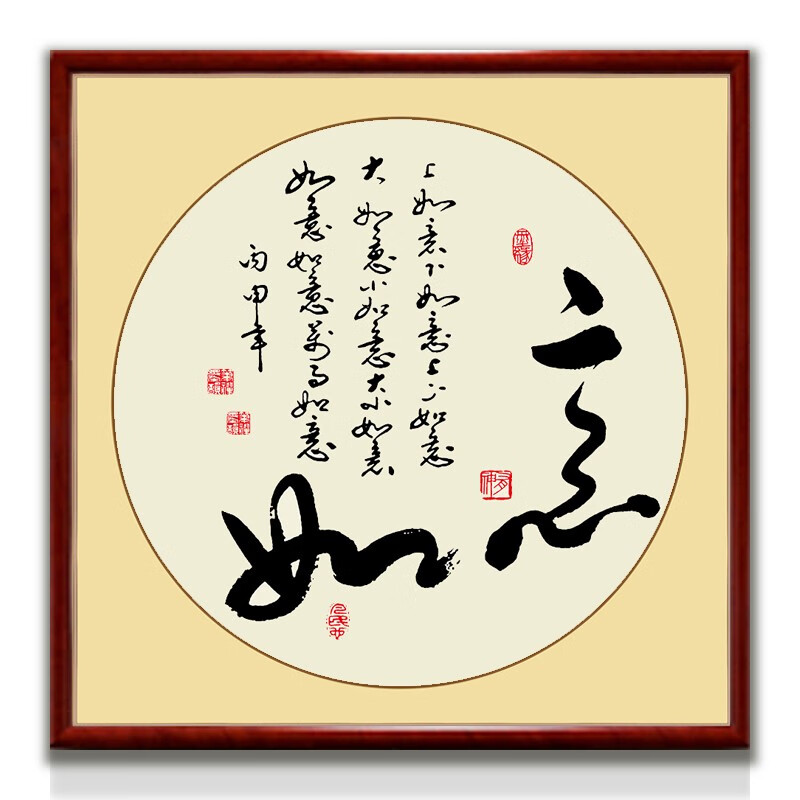 如意
上如意下如意上下如意
大如意小如意大小如意
如意如意萬事如意
丙申年